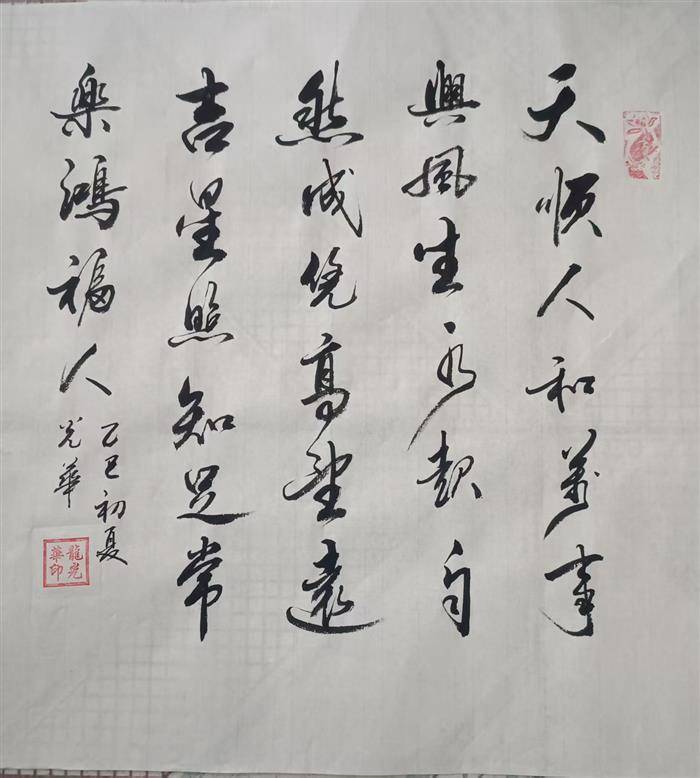 天順人和萬事
興風生水起自
然成凭高望遠
吉星照知足常
樂鴻福人
乙巳初夏
光華
龍光華印